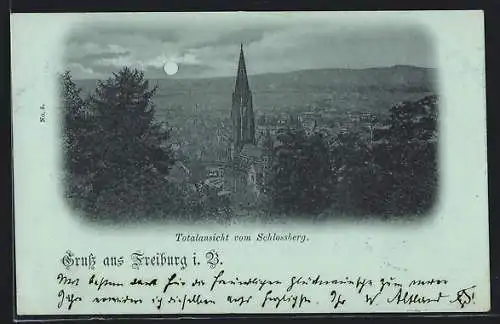 No. 4.
Totalansicht vom Schlossberg.
Gruß aus Freiburg i. B.
Mit bestem dank für die freundlichen Glückwünsche zum neuen
Jahr erwidere ich dieselben aufs herzlichste. Ihr W. Altland